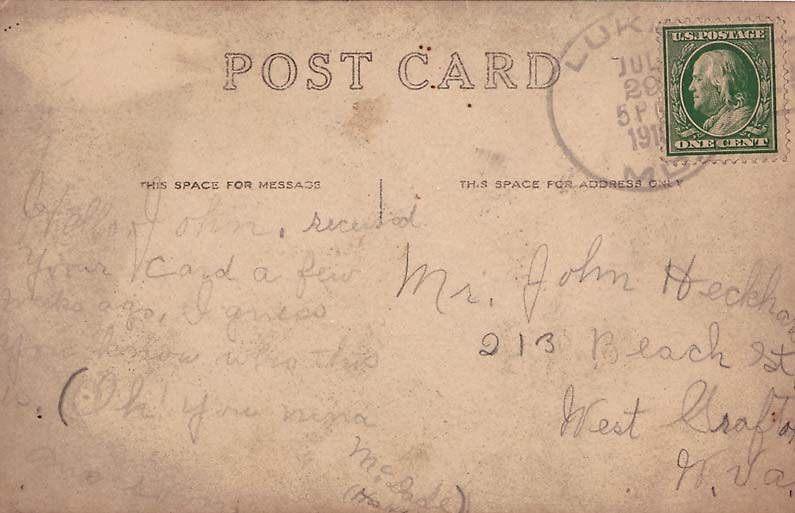 POST CARD
LUK
JUL
29
5 P
191
MD
U.S. POSTAGE
ONE CENT
THIS SPACE FOR MESSAGE
THIS SPACE FOR ADDRESS ONLY
Hello, John, received
Your Card a few
weeks ago, I guess
You know who this
is. (Oh! You nina
Mr. John Heckha
213 Beach St
West Grafton
W. Va.